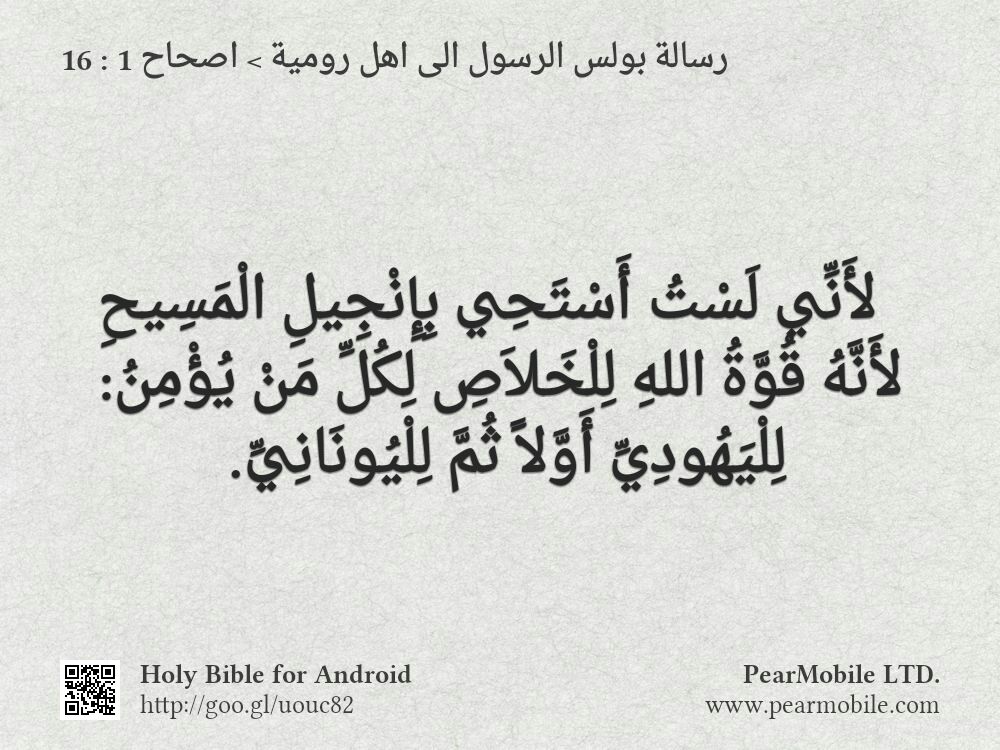 رسالة بولس الرسول الى اهل رومية > اصحاح 1 : 16
لأَنِّي لَسْتُ أَسْتَحِي بِإِنْجِيلِ الْمَسِيحِ
لأَنَّهُ قُوَّةُ اللهِ لِلْخَلاَصِ لِكُلِّ مَنْ يُؤْمِنُ:
لِلْيَهُودِيِّ أَوَّلاً ثُمَّ لِلْيُونَانِيِّ.
Holy Bible for Android
http://goo.gl/uouc82
PearMobile LTD.
www.pearmobile.com